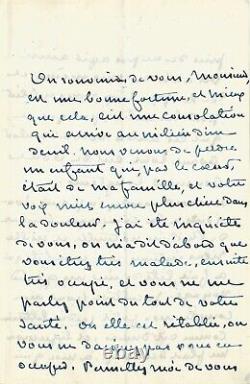 Un souvenir de vous, Monsieur,
est une bonne fortune, et mieux
que cela, c'est une consolation
qui arrive au milieu d'un
deuil. Nous venons de perdre
un enfant qui par le cœur,
était de ma famille, et votre
voix m'est encore plus chère dans
la douleur. J'ai été inquiète
de vous, on m'a dit d'abord que
vous étiez très malade, ensuite
très occupé, et vous ne me
parlez point du tout de votre
santé. Ou elle est rétablie, ou
vous ne daignez pas vous en
occuper. Permettez moi de vous